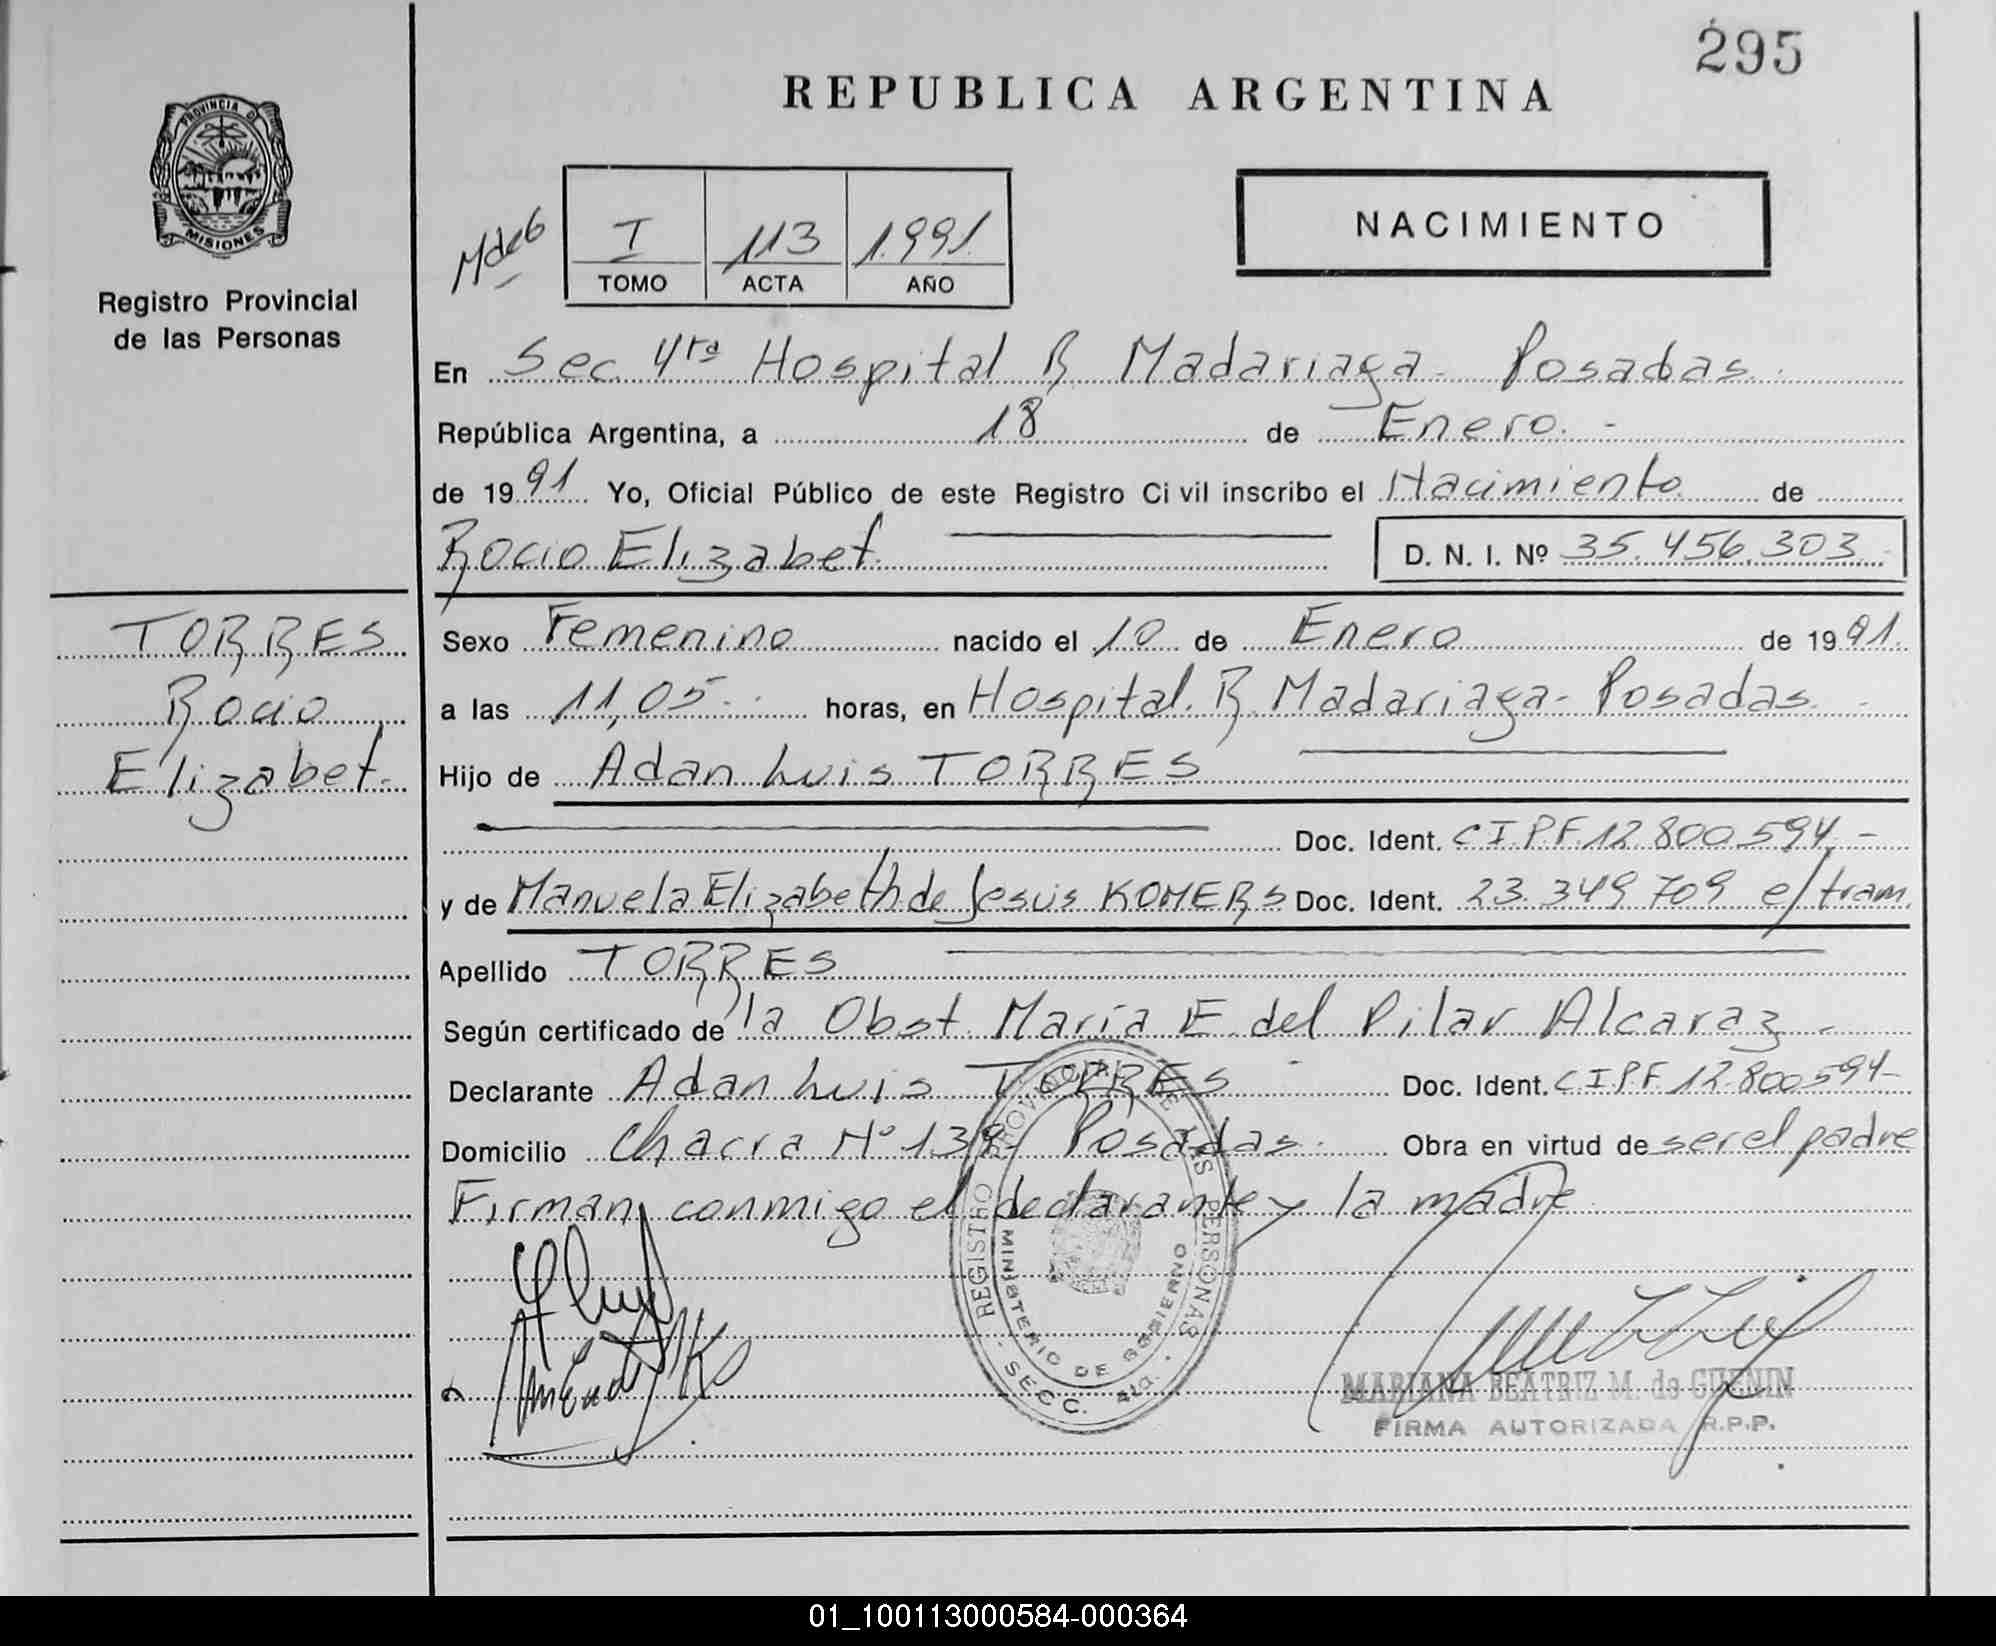 295
REPUBLICA ARGENTINA
PROVINCIA DE
MISIONES
Registro Provincial
de las Personas
I 113 1.991.
TOMO ACTA AÑO
NACIMIENTO
En Sec. 4ta Hospital R Madariaga - Posadas.
República Argentina, a 18 de Enero. -
de 1991 Yo, Oficial Público de este Registro Civil inscribo el Nacimiento de
Rocio Elizabet. D. N. I. Nº 35.456.303.-
TORRES
Rocio
Elizabet.-
Sexo Femenino nacido el 10 de Enero de 1991.
a las 11,05.- horas, en Hospital. R. Madariaga - Posadas.
Hijo de Adan Luis TORRES
Doc. Ident. C.I.P.F. 12.800.594.-
y de Manuela Elizabeth de Jesús KOMERS Doc. Ident. 23.349.709 e/tram.
Apellido TORRES
Según certificado de la Obst. María E. del Pilar Alcaraz -
Declarante Adan Luis TORRES Doc. Ident. C.I.P.F. 12.800.594-
Domicilio Chacra Nº 139, Posadas. Obra en virtud de ser el padre
Firman conmigo el declarante y la madre
REGISTRO PROVINCIAL DE LAS PERSONAS
MINISTERIO DE GOBIERNO
SECC. 4ta.
MARIANA BEATRIZ M. de GUENIN
FIRMA AUTORIZADA R.P.P.
01_100113000584-000364